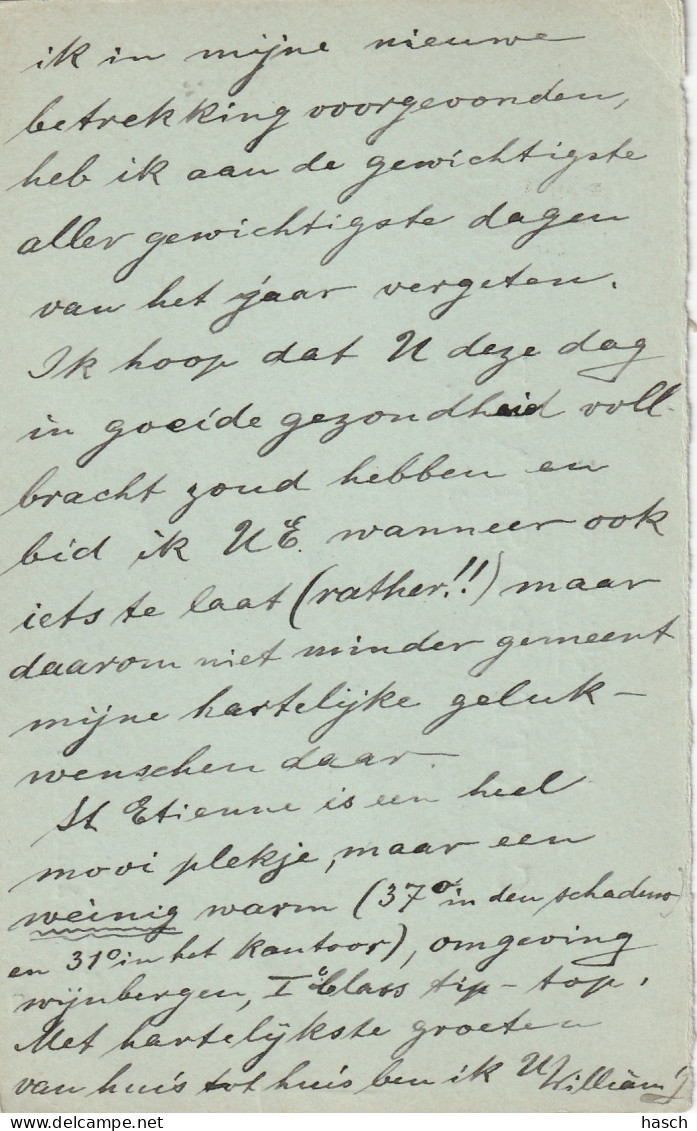 ik in mijne nieuwe
betrekking voorgevonden,
heb ik aan de gewichtigste
aller gewichtigste dagen
van het jaar vergeten.
Ik hoop dat U deze dag
in goeide gezondheid voll-
bracht zoud hebben en
bid ik UE. wanneer ook
iets te laat (rather!!) maar
daarom niet minder gemeent
mijne hartelijke geluk-
wenschen daar.
St Etienne is een heel
mooi plekje, maar een
weinig warm (37° in den schaduw
en 31° in het kantoor), omgeving
wijnbergen, Ie Class tip-top.
Met hartelijkste groeten
van huis tot huis ben ik U William
hasch